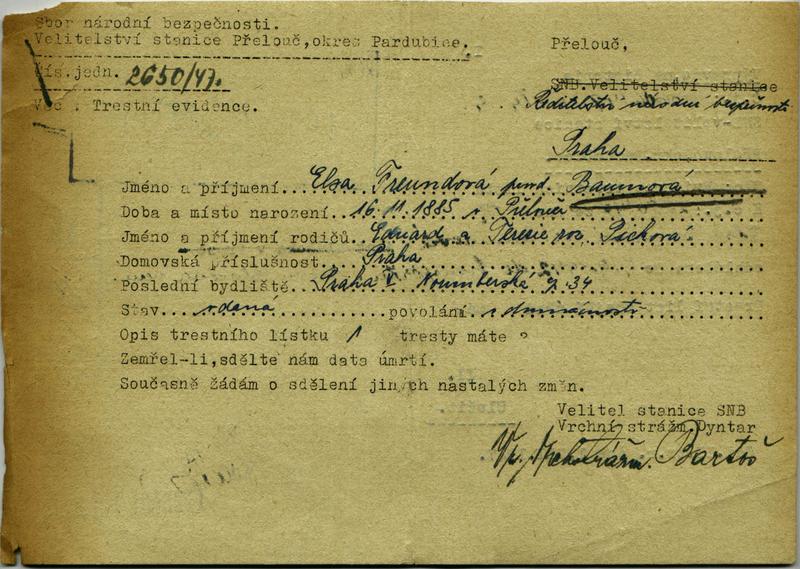 Sbor národní bezpečnosti.
Velitelství stanice Přelouč, okres Pardubice.
Přelouč,
Čís. jedn. 2650/47.
SNB. Velitelství stanice
Ředitelství národní bezpečnosti
Věc : Trestní evidence.
Praha
Jméno a příjmení... Elsa Freundová Baumová
Doba a místo narození. 16.11.1885 v Přelouči
Jméno a příjmení rodičů. Eduard a Terezie roz. Picková
Domovská příslušnost. Praha
Poslední bydliště. Praha V. č. 34
Stav... vdaná ...povolání. v domácnosti
Opis trestního lístku 1 tresty máte ?
Zemřel-li, sdělte nám data úmrtí.
Současně žádám o sdělení jiných nastalých změn.
Velitel stanice SNB
Vrchní strážm. Dyntar
Bartoš